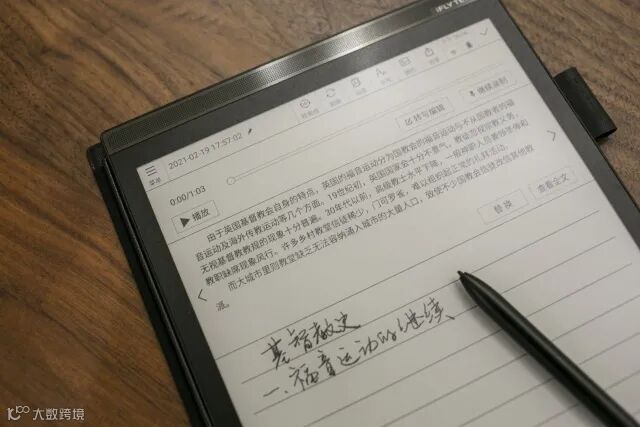 iFLYTE
菜单
2021-02-19 17:57:02
转写编辑
继续录制
0:00/1:03
播放
由于英国基督教会自身的特点，英国的福音运动分为国教会的福音运动与不从国教者的福
音运动及海外传教运动等几个方面。19世纪初，英国国家会十分不景气，教徒忽视宗教义务，
无视基督教教规的现象十分普遍。30年代以前，高级教士水平下降，一般神职人员素体
教职缺席现象风行。许多乡村教堂信徒稀少，门可罗雀，难以组织起正常的礼拜活动。
而大城市里则教堂缺乏无法容纳涌入城市的大量人口，致使不少国教会信徒改信其他教
派。
替换
查看全文
基督教史
一、福音运动的继续、
大数跨境